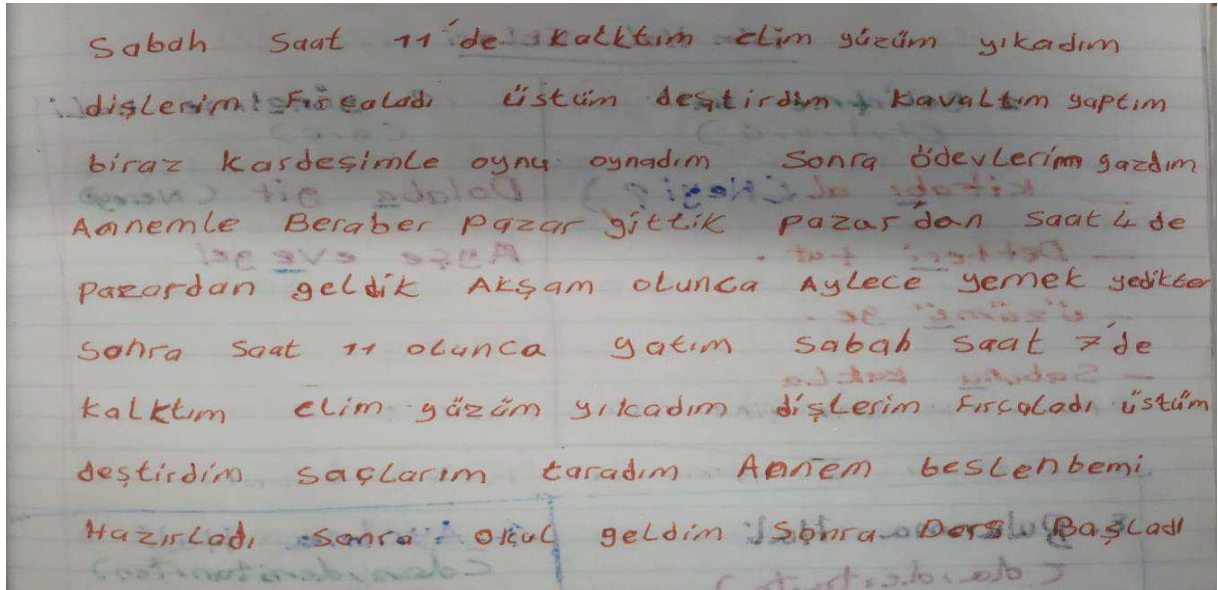 Sabah Saat 11'de kalktım elim yüzüm yıkadım
dişlerim Fırçaladı üstüm deştirdim kavaltım yaptım
biraz kardeşimle oynu oynadım Sonra ödevlerim yazdım
Annemle Beraber pazar gittik pazar'dan saat 4 de
pazardan geldik Akşam olunca Aylece yemek yedikter
sohra saat 11 olunca yatım sabah saat 7'de
kalktım elim yüzüm yıkadım dişlerim Fırçaladı üstüm
deştirdim saçlarım taradım Annem beslenbemi
Hazırladı sonra okul geldim Sohra Ders Başladı